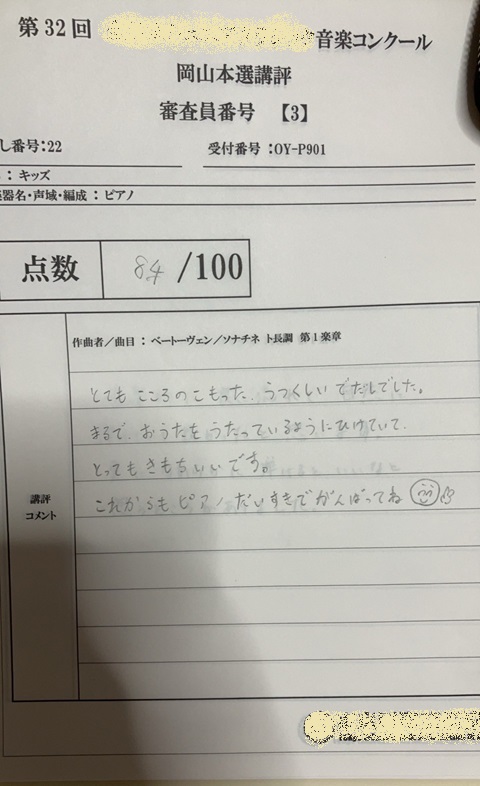 第32回 音楽コンクール
岡山本選講評
審査員番号 【3】
し番号:22 受付番号:OY-P901
: キッズ
器名・声域・編成:ピアノ
点数 84/100
作曲者/曲目:ベートーヴェン/ソナチネ ト長調 第1楽章
とても こころのこもった、うつくしい でだしでした。
まるで、おうたを うたっているように ひけていて、
とってもきもちいい です。
これからも ピアノ だいすきで がんばってね
講評
コメント